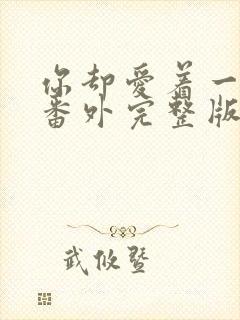 你却爱着一
番外完整版
武攸暨